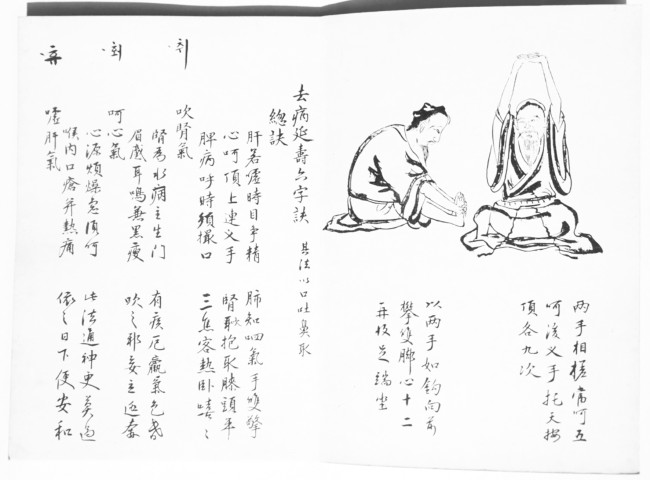 兩手相搓當呵五
呵後叉手托天按
頂各九次
以兩手如鉤向前
攀雙脚心十二
再收足端坐
去病延壽六字訣 其法以口吐鼻取
總訣
肝若噓時目爭精 肺知呬氣手雙擎
心呵頂上連叉手 腎吹抱取膝頭平
脾病呼時須撮口 三焦客熱卧嘻〻
취 吹腎氣
腎爲水病主生門 有疾尫羸氣色昏
眉蹙耳鳴兼黑瘦 吹之邪妄立逃奔
呵心氣
心源煩燥急須呵 此法通神更莫過
喉內口瘡并熱痛 依之日下便安和
噓肝氣